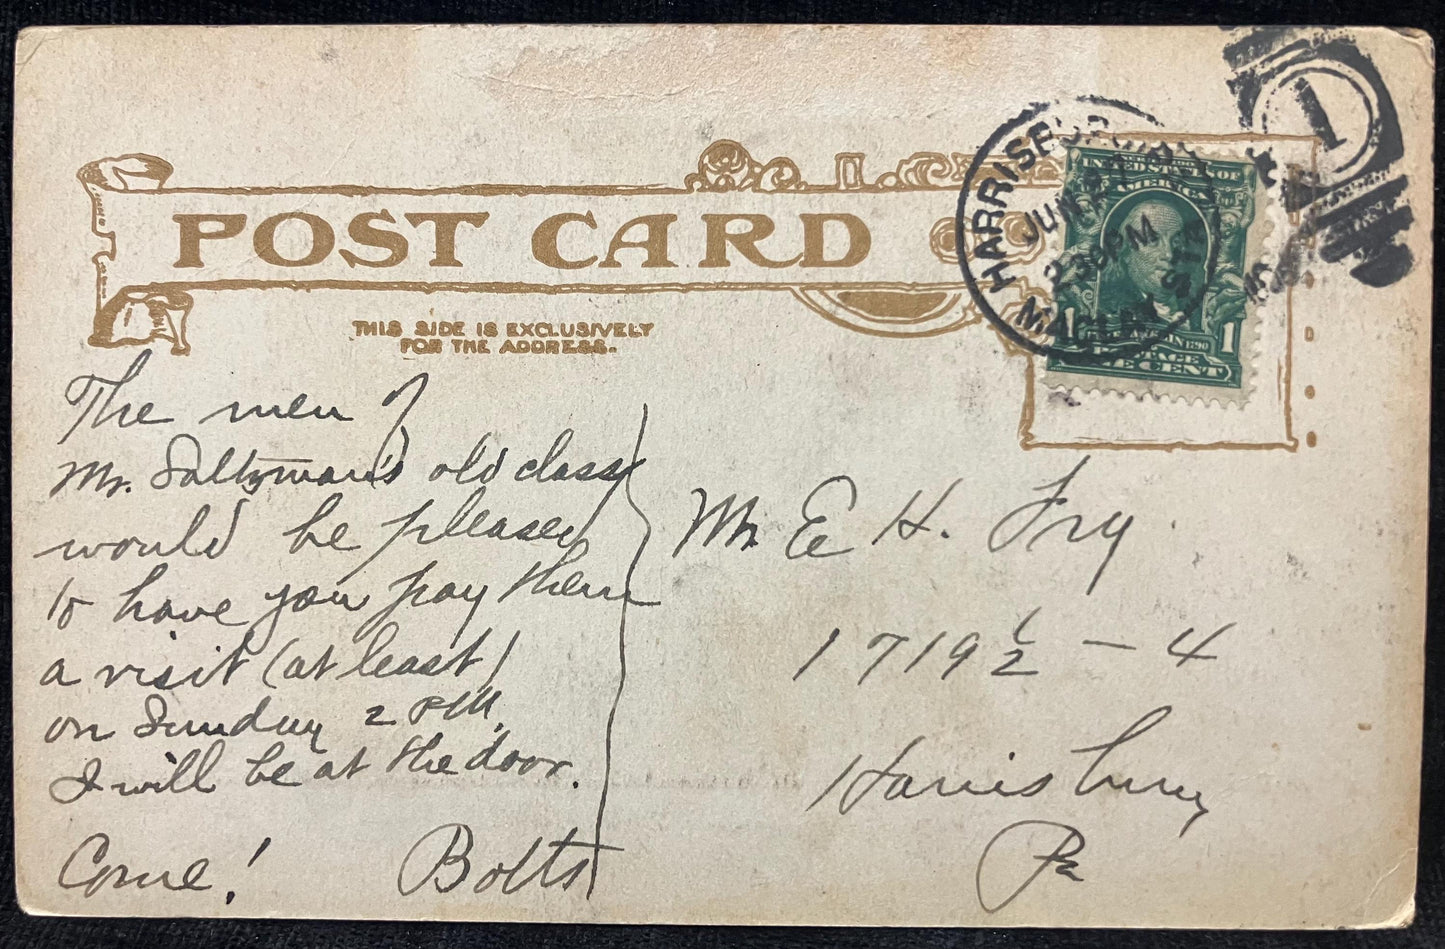 POST CARD
THIS SIDE IS EXCLUSIVELY
FOR THE ADDRESS.
HARRISBURG
JUN
2 30 PM
MARKET ST
1
UNITED STATES OF
AMERICA
1 1
POSTAGE
ONE CENT
The men of
Mr. Saltzman's old class
would be pleased
to have you pay them
a visit (at least)
on Sunday 2 PM.
I will be at the door.
Come! Bolts
Mr E H. Fry.
1719 1/2 - 4
Harrisburg
Pa